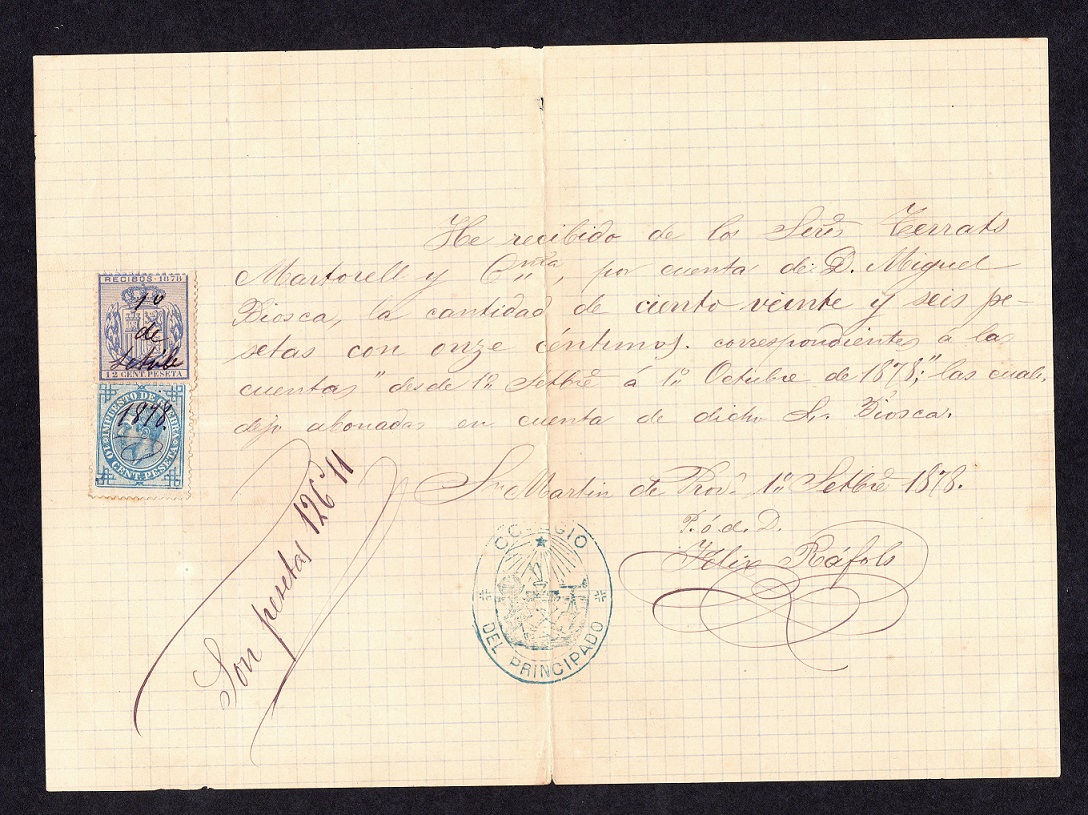 He recibido de los Seres Terrats
Martorell y Cª, por cuenta de D. Miguel
Biosca, la cantidad de ciento veinte y seis pe
setas con onze céntimos. correspondientes á la
cuentas "desde 1º Setbre á 1º Octubre de 1878;" las cuales
dejo abonadas en cuenta de dicho Sr Biosca.
Sn Martin de Prov. 1º Setbre 1878.
P. ó. d. D.
Felix Ráfols
Son pesetas 126 11
RECIBOS-1878
1º
de
12 CENT. PESETA
IMPUESTO DE GUERRA
1878.
10 CENT. PESETA
COLEGIO
DEL PRINCIPADO